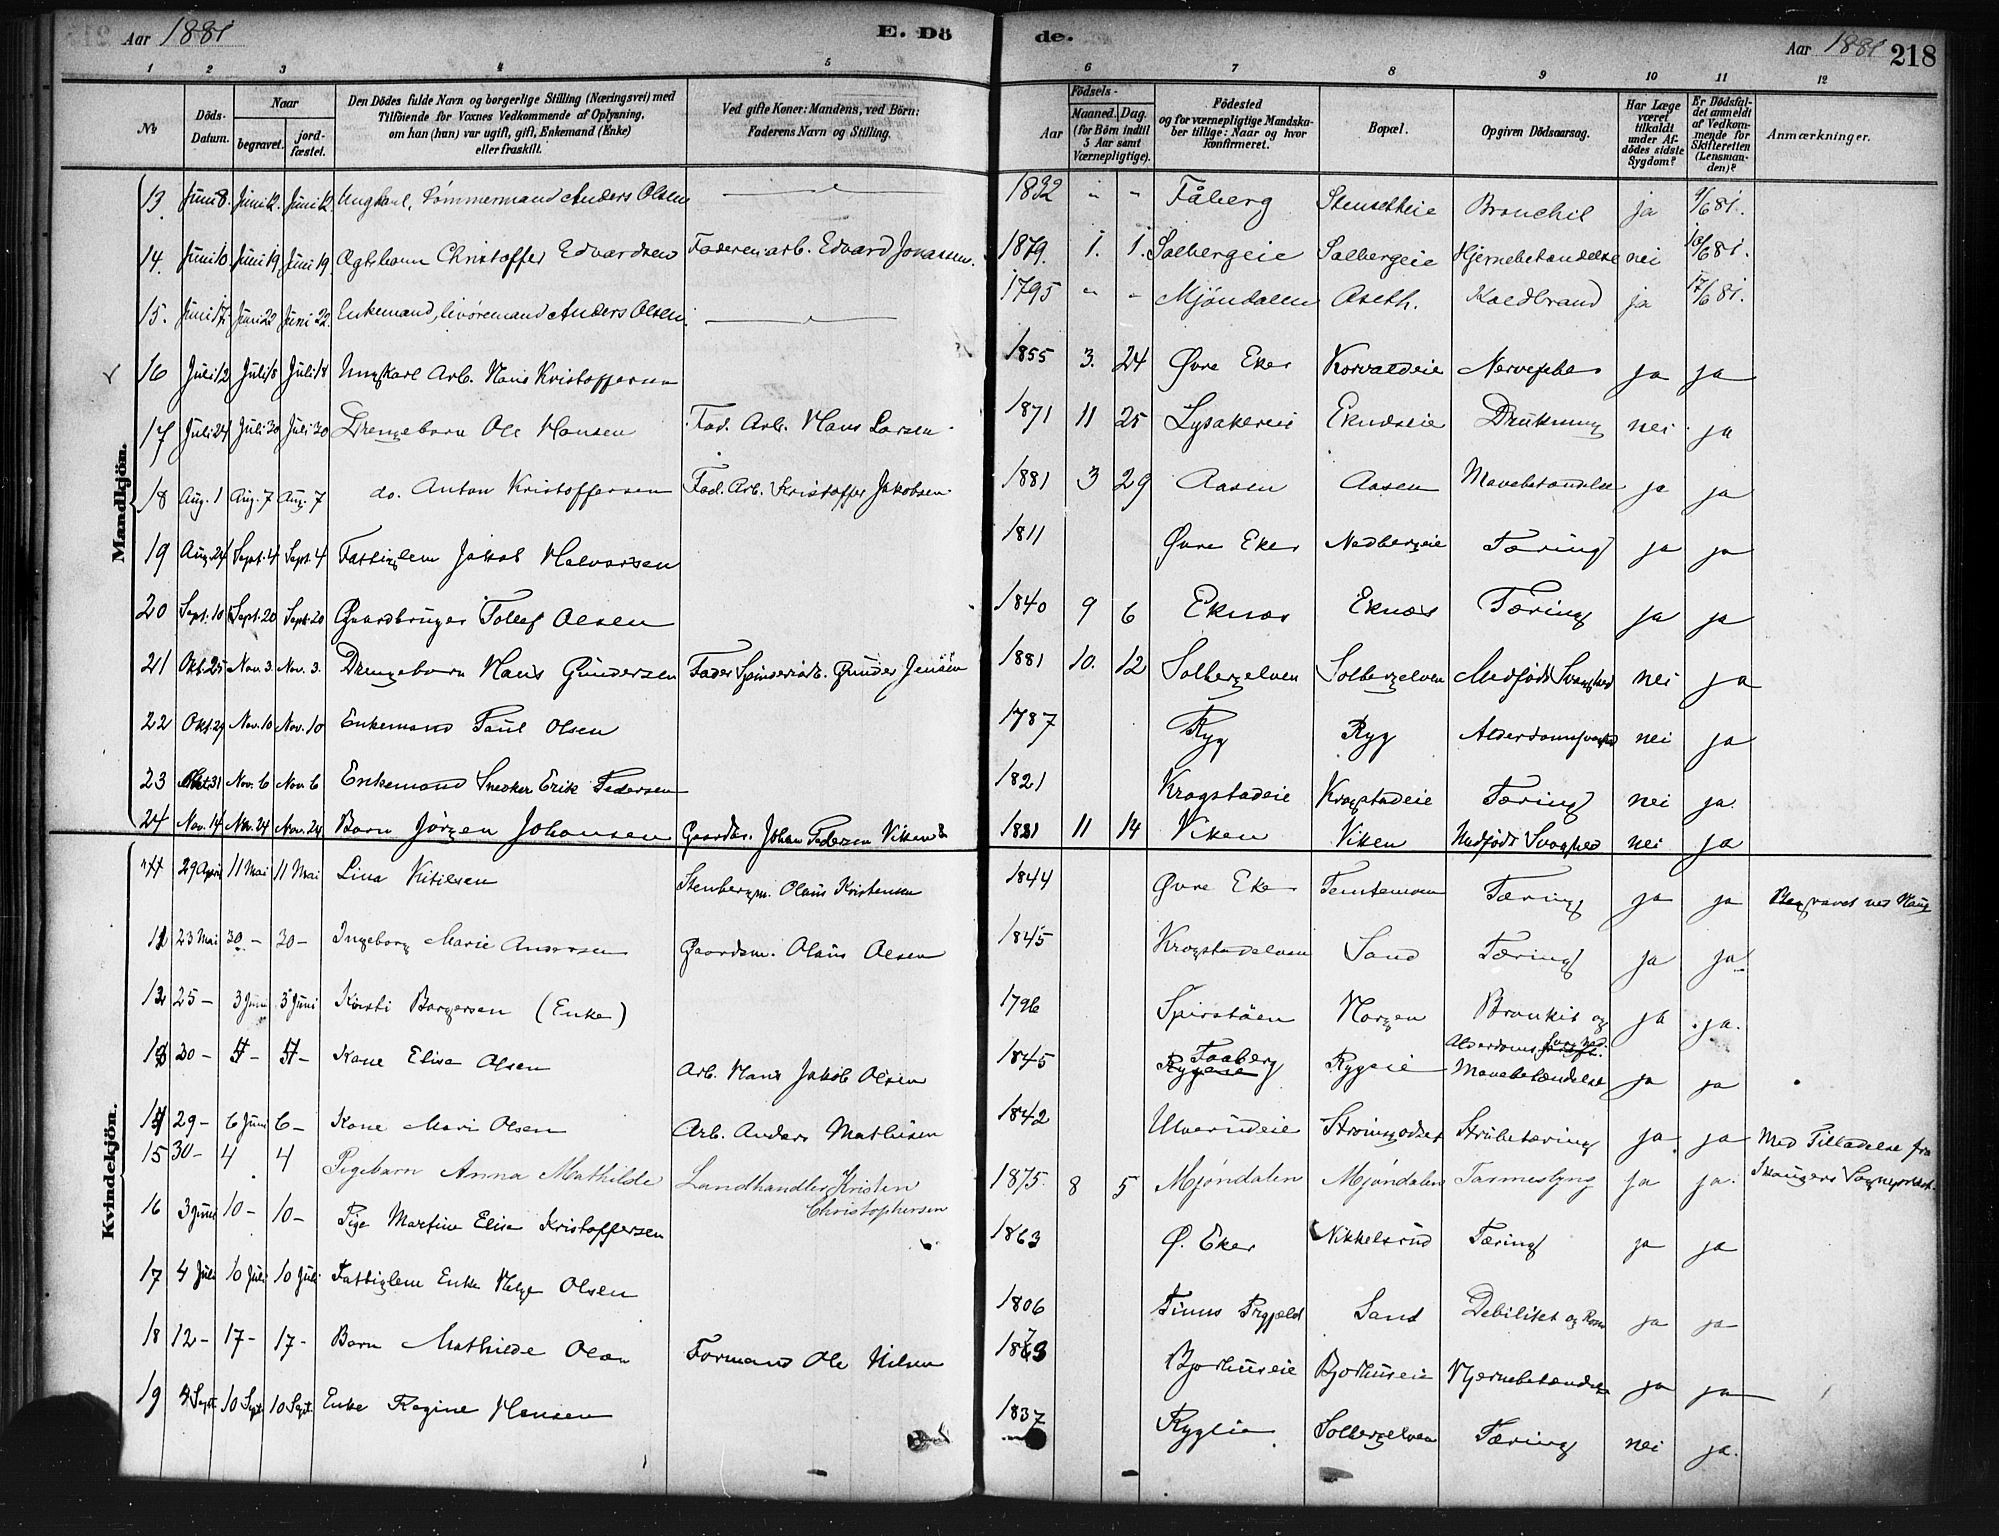 Aar 1881 E. Dö de. Aar 1881 218
1 2 3 4 5 6 7 8 9 10 11 12
No Döds-Datum. Naar begravet. jord-fæstet. Den Dödes fulde Navn og borgerlige Stilling (Næringsvei) med Tilföiende for Voxnes Vedkommende af Oplysning, om han (hun) var ugift, gift, Enkemand (Enke) eller fraskilt. Ved gifte Koner: Mandens, ved Börn: Faderens Navn og Stilling. Födsels- Aar Maaned. Dag. (for Börn indtil 5 Aar samt Værnepligtige). Födested og for værnepligtige Mandskaber tillige: Naar og hvor konfirmeret. Bopæl. Opgiven Dödsaarsag. Har Læge været tilkaldt under Afdödes sidste Sygdom? Er Dödsfaldet anmeldt af Vedkommende for Skifteretten (Lensmanden)? Anmærkninger.
Mandkjön.
13. Juni 8. Juni 12. Juni 12. Ungkarl, Tömmermand Anders Olsen 1832 - - Fåberg Stensetheie ja 9/6 81.
14. Juni 10. Juni 19. Juni 19. Christoffer Edvardsen Faderen arb. Edvard Jonassen. 1879. 1. 1. Solbergeie Solbergeie Hjernebetændelse nei 10/6 81.
15. Juni 17. Juni 22 Juni 22. Enkemand, Anders Olsen. 1795 - - Mjöndalen Aseth. Koldbrand ja 17/6 81.
16 Juli 12 Juli 18 Juli 18 Ungkarl Arb. Hans Kristoffersen 1855 3. 24 Øvre Eker Korvaldeie ja ja
17 Juli 24 Juli 30 Juli 30 Drengebarn Ole Hansen Fad. Arb. Hans Larsen. 1871 11 25 Lysakereie Eknæseie Drukning nei. ja
18 Aug. 1 Aug. 7 Aug. 7 do. Anton Kristoffersen Fad. Arb. Kristoffer Jakobsen 1881 3 29 Aasen Aasen Mavebetændelse ja ja
19 Aug. 24 Sept. 4 Sept. 4 Fattiglem Jakob Halvorsen 1811 Øvre Eker Nedbergeie Tæring ja ja
20 Sept. 10 Sept. 20 Sept. 20 Gaardbruger Tollef Olsen 1840 9 6 Eknæs Eknæs Tæring ja ja
21 Okt. 25 Nov. 3 Nov. 3. Drengebarn Hans Gundersen Fader Spinderiarb. Gunder Jensen 1881 10. 12 Solbergelven Solbergelven Medfödt Svaghed nei ja
22 Okt. 29 Nov. 10 Nov. 10 Enkemand Paul Olsen 1787 Ryg Ryg Alderdomssvaghed nei ja
23 Okt. 31 Nov. 6 Nov. 6 Enkemand Snedker Erik Pedersen 1821 Krogstadeie Krogstadeie Tæring nei ja.
24 Nov. 14 Nov. 24 Nov. 24 Barn Jörgen Johansen Gaardbr. Johan Pedersen Viken 1881 11 14 Viken Viken Medfödt Svaghed nei ja
Kvindekjön.
29 April 11 Mai 11 Mai Lina Kitilsen Olaus Kristensen 1844 Øvre Eker Tæring ja ja Begravet ved Haug
11 23 Mai 30 - 30 - Ingeborg Marie Andersen Gaardm. Olaus Olsen 1845 Krogstadelven Sand Tæring ja ja
12 25 - 3 Juni 3 Juni Kirsti Borgersen (Enke) 1796 Horgen Bronkit og Alderdomssvaghed ja ja.
13 30 - Kone Elise Olsen Arb. Hans Jakob Olsen 1845 Faaberg Rygeie Rygeie Mavebetændelse ja ja
14 29 - 6 Juni 6 - Kone Mari Olsen Arb. Anders Mathisen 1842 Ulverudeie Strömsodset Strubetæring ja ja Med Tilladelse fra
15 30 - 4 4 Pigebarn Anna Mathilde Landhandler Kristen Christophersen 1875. 8 5 Mjöndalen Mjöndalen Tarmeslyng ja ja. Skougers Sogneprest.
16 3 Juni 10 - 10 - Pige Martine Elise Kristoffersen 1863 Ø. Eker Nikkelsrud Tæring ja ja
17 4 Juli 10 Juli 10 Juli Fattiglem Enke Helge Olsen 1806 Sand Debilitet og ja ja
18 12 - 17 - 17 - Barn Mathilde Olsen Formand Ole Nilsen 1873 Bjorhuseie Bjorhuseie Hjernebetændelse ja ja
19 4 Sept 10 Sept 10 Sept. Enke Regine Hansen 1837 Rygeie Solbergelven Tæring nei ja.